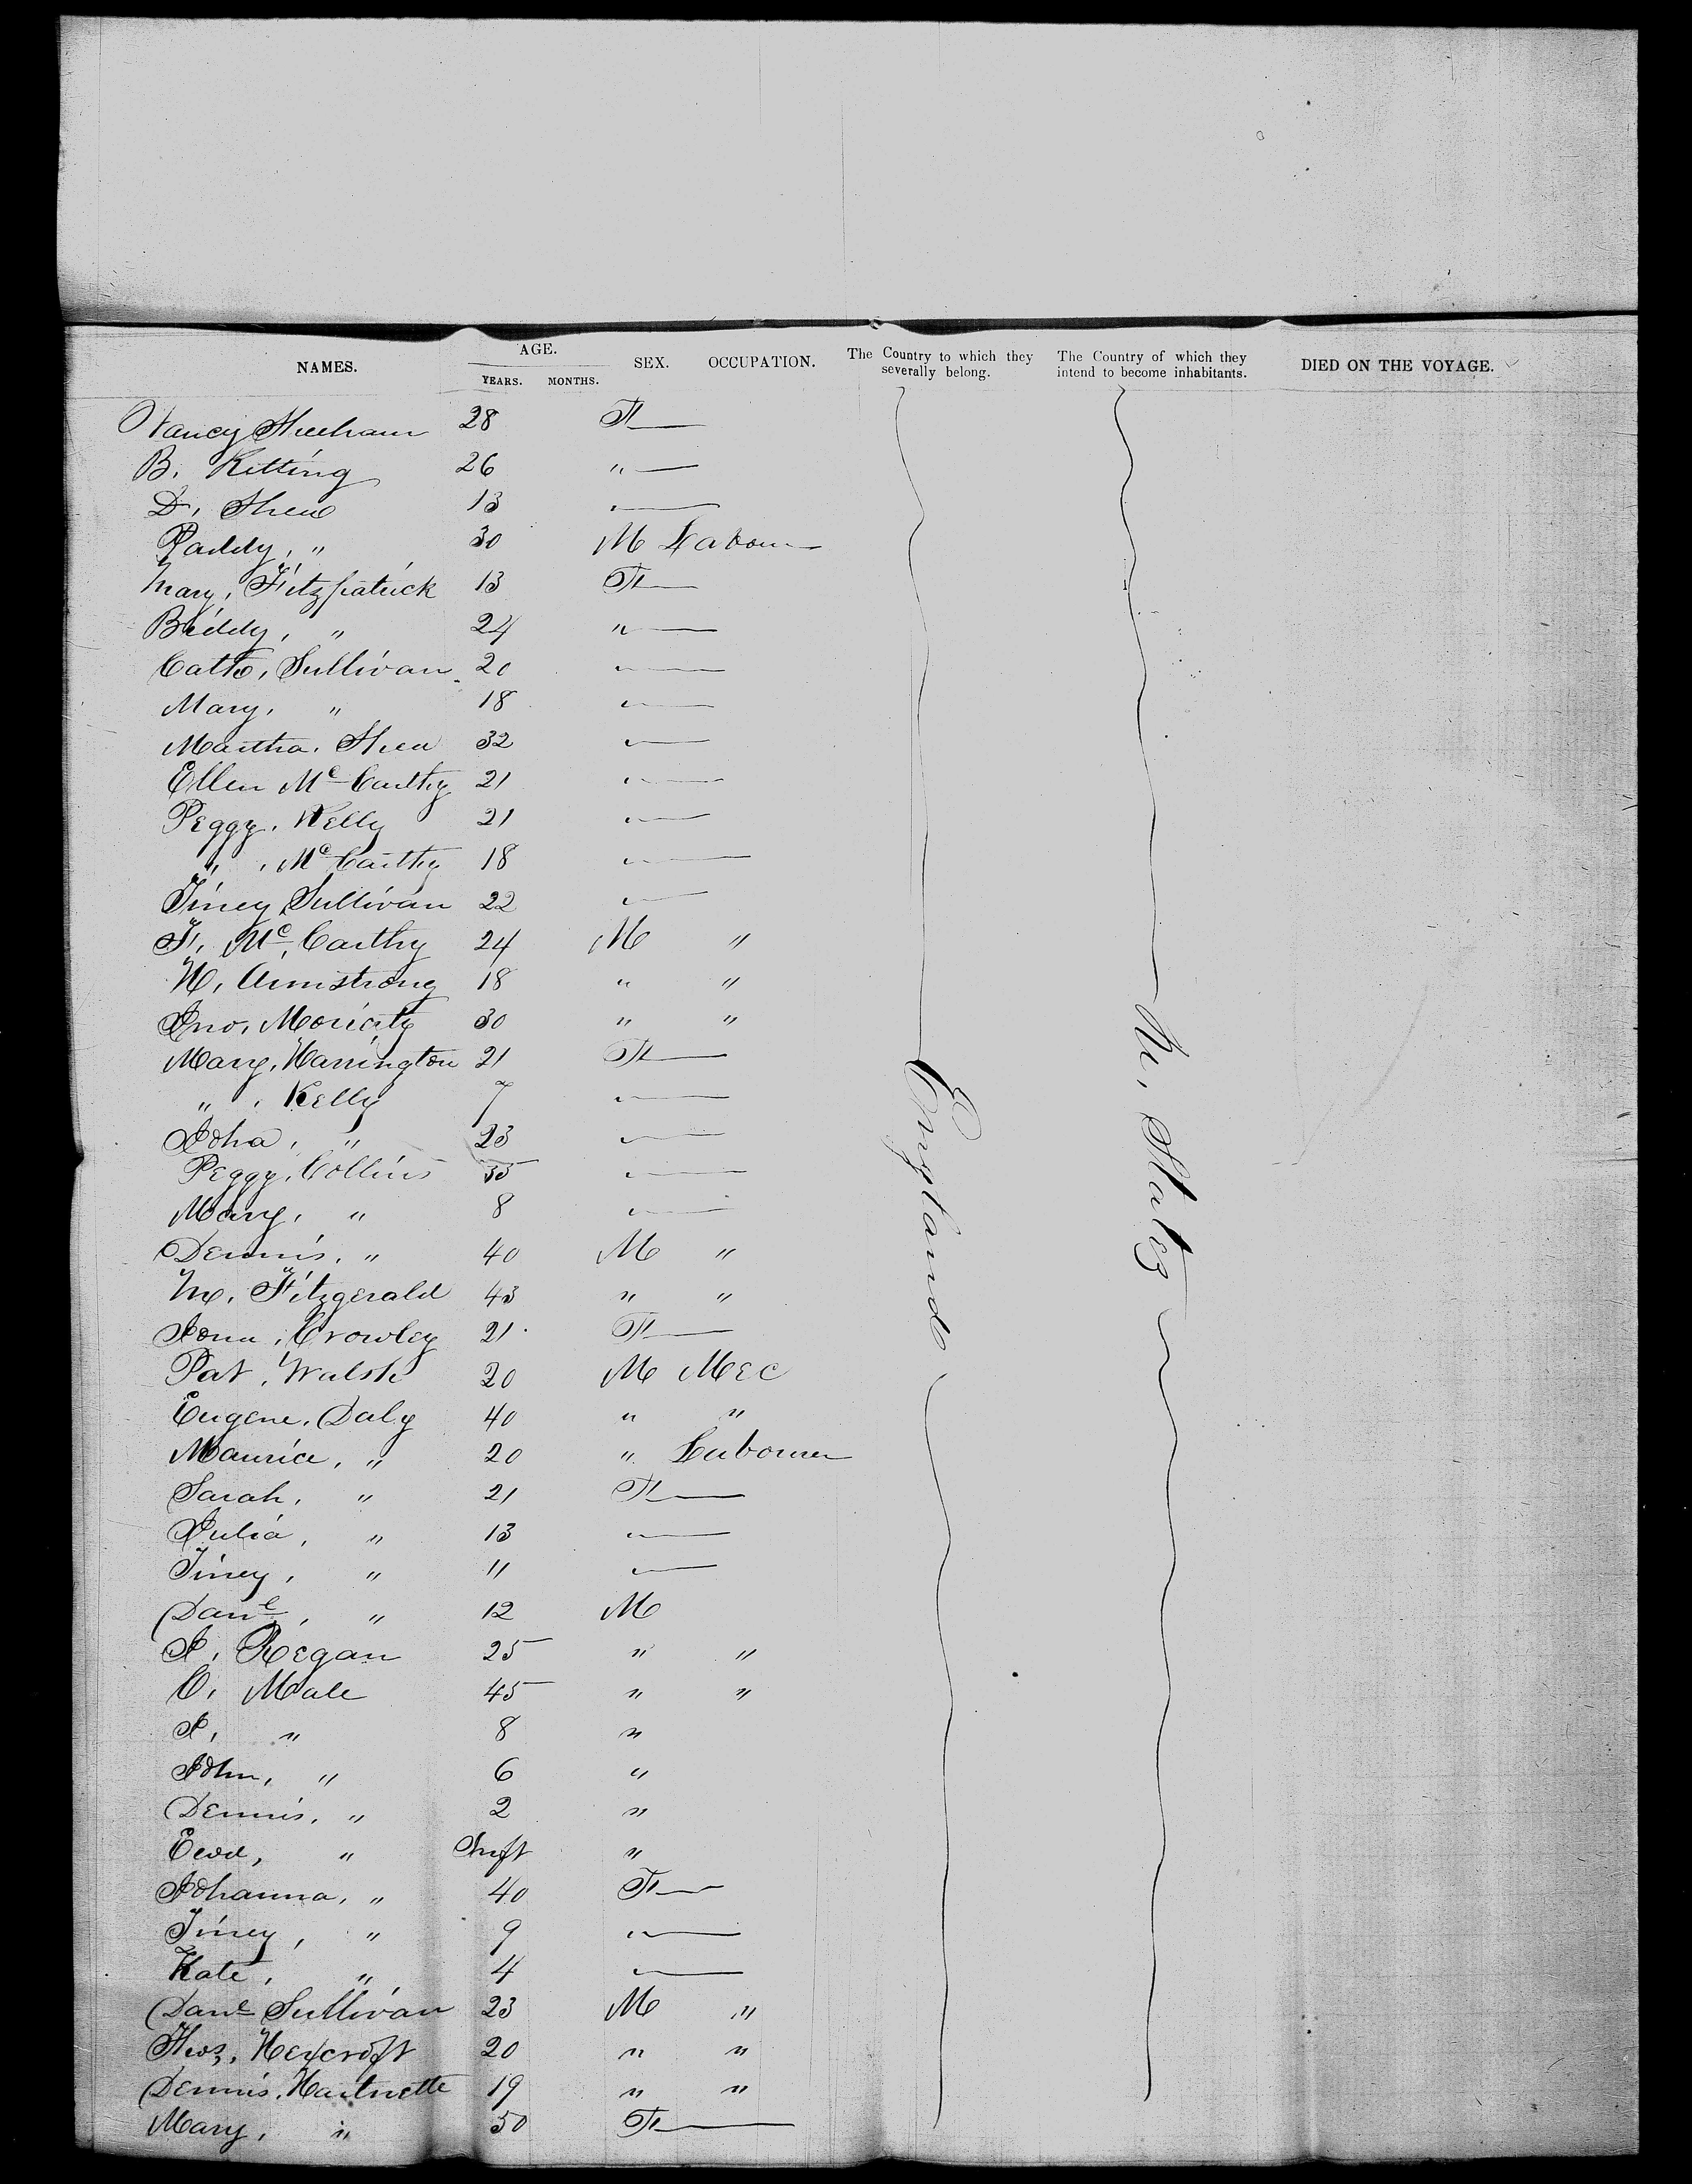 NAMES. AGE. YEARS. MONTHS. SEX. OCCUPATION. The Country to which they severally belong. The Country of which they intend to become inhabitants. DIED ON THE VOYAGE.
Nancy Sheehan 28 F
B. Kitting 26 "
D, Shea 13
Paddy, " 30 M Labour
Mary, Fitzpatrick 13 F
Biddy, " 24 "
Cath, Sullivan 20
Mary, " 18
Martha, Shea 32
Ellen Mc Carthy 21
Peggy, Kelly 21
" , Mc Carthy 18
Jiney Sullivan 22
F, Mc, Carthy 24 M "
H, Armstrong 18 " "
Jno, Moriarty 30 " "
Mary, Harrington 21 F
" , Kelly 7
Joha, " 23
Peggy, Collins 35
Mary, " 8
Dennis, " 40 M "
M, Fitzgerald 43 " "
Crowley 21 F
Pat, Walsh 20 M Mec
Eugene, Daly 40 " "
Maurice, " 20 " Labourer
Sarah, " 21 F
Julia, " 13
Jiney, " 11
Danl, " 12 M
J, Regan 25 " "
C, Male 45 " "
J, " 8 "
John, " 6 "
Dennis, " 2 "
Ewd, " Inft "
Johanna, " 40 F
Jiney, " 9
Kate, " 4
Danl Sullivan 23 M "
Thos, Hexcroft 20 " "
Dennis, Hartnette 19 " "
Mary, " 50 F
England
U, States